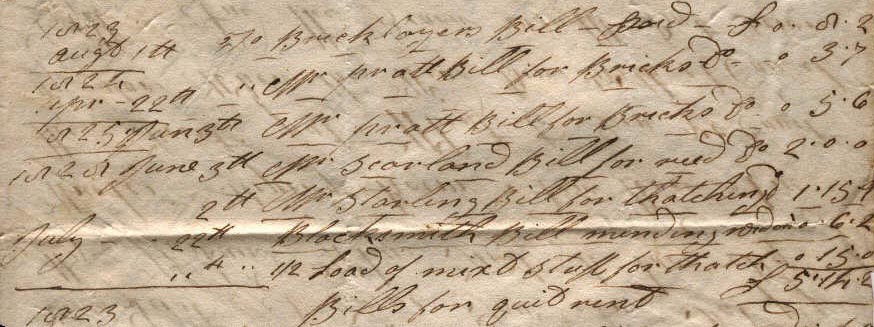 1823
Augst 1th To Bricklayers Bill - paid - £ 0. 8. 2
1824
Apr - 22th " Mr pratt Bill for Bricks Do - 0 3. 7
1825 Jan 3th Mr pratt Bill for Bricks Do 0 5. 6
1828 June 3th Mr Scarland Bill for reed Do 2. 0. 0
2th Mr Starling Bill for thatching 1. 15
July 22th Blacksmith Bill mending 0. 6. 2
" th " 1/2 Load of mixd Stuff for thatch 0 15. 0
£ 5. 14. 2
1823 Bills for quid rent